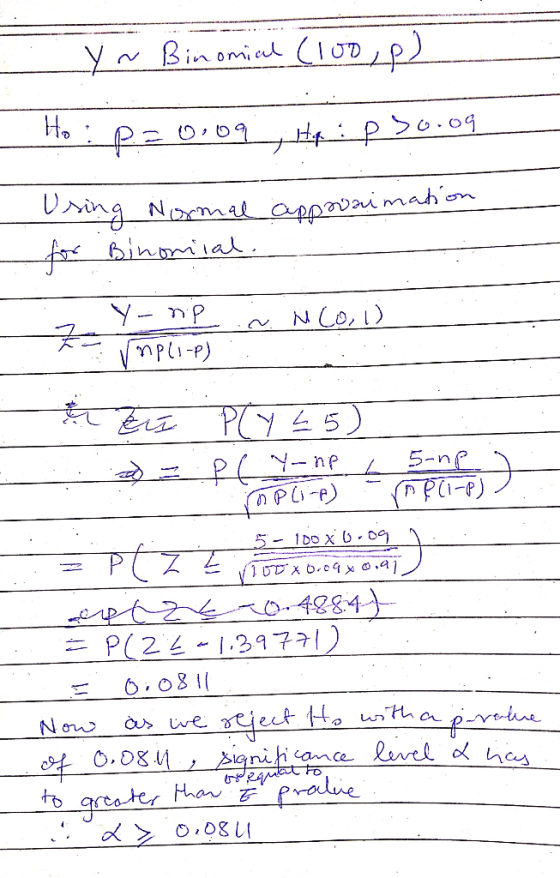 Y ~ Binomial (100, p)
H₀ : p = 0.09 , H₁ : p > 0.09
Using Normal approximation
for Binomial.
Z = (Y - np) / √(np(1-p)) ~ N(0,1)
P(Y ≤ 5)
= P( (Y-np) / √(np(1-p)) ≤ (5-np) / √(np(1-p)) )
= P( Z ≤ (5 - 100 x 0.09) / √(100 x 0.09 x 0.91) )
= P(Z ≤ -1.39771)
= 0.0811
Now as we reject H₀ with a p-value
of 0.0811, significance level α has
to greater than or equal to pvalue
∴ α ≥ 0.0811